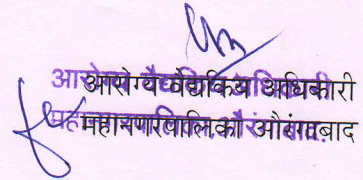 आरोग्य वैद्यकिय अधिकारी
महानगरपालिका औरंगाबाद